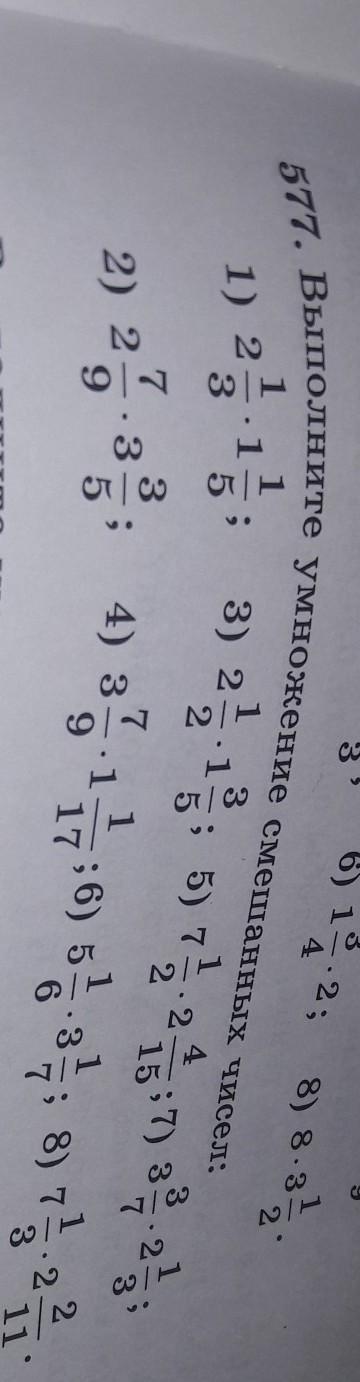 3, 6) 1 3/4 · 2; 8) 8 · 3 1/2.
577. Выполните умножение смешанных чисел:
1) 2 1/3 · 1 1/5; 3) 2 1/2 · 1 3/5; 5) 7 1/2 · 2 4/15; 7) 3 3/7 · 2 1/3;
2) 2 7/9 · 3 3/5; 4) 3 7/9 · 1 1/17; 6) 5 1/6 · 3 1/7; 8) 7 1/3 · 2 2/11.